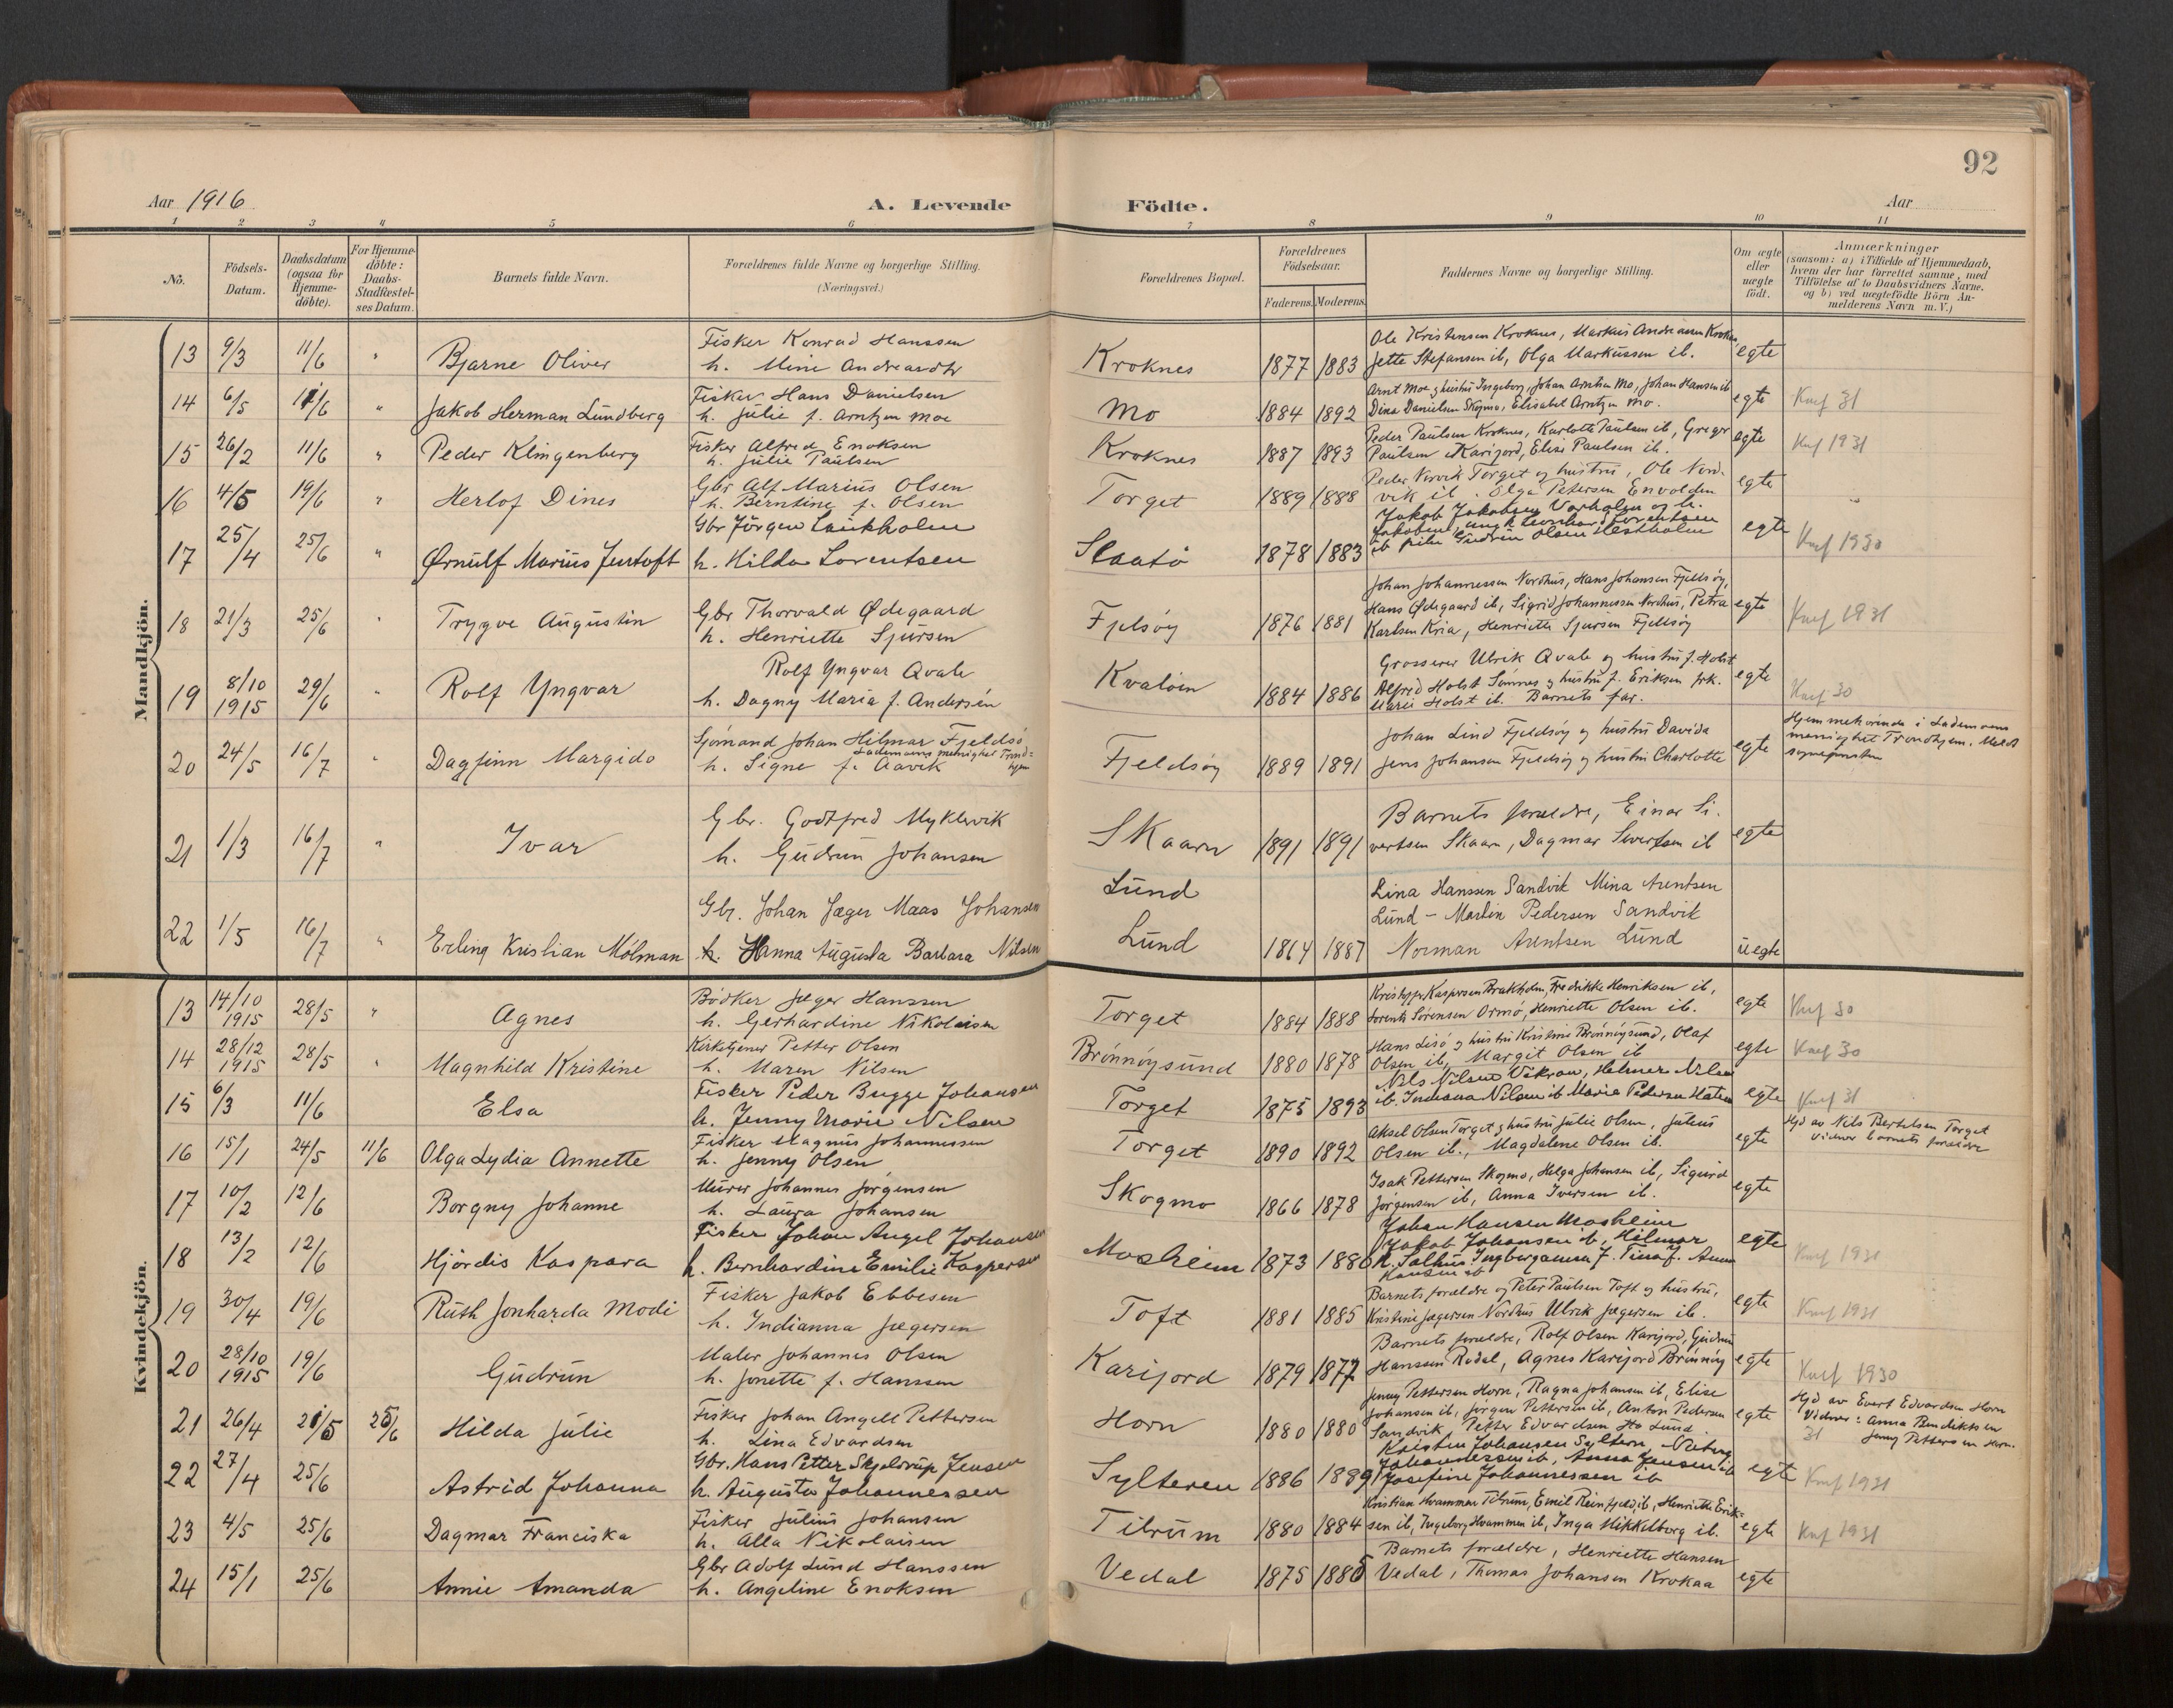 92
Aar 1916
A. Levende Födte.
Aar
1 2 3 4 5 6 7 8 9 10 11
No.
Födsels-Datum.
Daabsdatum (ogsaa for Hjemme-döbte).
For Hjemme-döbte: Daabs-Stadfæstel-ses Datum.
Barnets fulde Navn.
Forældrenes fulde Navne og borgerlige Stilling. (Næringsvei.)
Forældrenes Bopæl.
Forældrenes Födselsaar.
Faderens. Moderens.
Faddernes Navne og borgerlige Stilling.
Om ægte eller uægte födt.
Anmærkninger (saasom: a) i Tilfælde af Hjemmedaab, hvem der har forrettet samme, med Tilföielse af to Daabsvidners Navne. og b) ved uægtefödte Börn An-melderens Navn m. V.)
Mandkjön.
13 9/3 11/6 " Bjarne Oliver
Fisker Konrad Hanssen
h. Mine Andreasdtr
Kroknes 1877 1883
Ole Kristensen Kroknes, Markus Andreassen Kroknes
Jette Stefansen ib, Olga Markussen ib. egte
14 6/5 11/6 " Jakob Herman Lundberg
Fisker Hans Danielsen
h. Julie f. Arntzen Moe
Mo 1884 1892
Arnt Moe og hustru Ingeborg, Johan Arntsen Mo, Johan Hansen ib
Dina Danielsen Skogmo, Elisabet Arntzen Mo. egte Knf 31
15 26/2 11/6 " Peder Klingenberg
Fisker Alfred Enoksen
h. Julie Paulsen
Kroknes 1887 1893
Peder Paulsen Kroknes, Karlotte Paulsen ib, Greger
Paulsen Karijord, Elise Paulsen ib. egte Knf 1931
16 4/5 19/6 " Herlof Dines
Gbr Alf Marius Olsen
h. Berntine f. Olsen
Torget 1889 1888
Peder Norvik Torget og hustru, Ole Nord-
vik ib. Olga Petersen Envolden egte
17 25/4 25/6 " Ørnulf Marius Jentoft
Gbr Jörgen Laukholm
h. Hilda Lorentsen
Slaatö 1878 1883
Jakob Jakobsen Varholm og h.
Jakobine, ungk Leonhard Lorentsen
ib pike Gudrun Olsen Hestholm egte Knf 1930
18 21/3 25/6 " Trygve Augustin
Gbr Thorvald Ødegaard
h. Henriette Sjursen
Fjelsöy 1876 1881
Johan Johannessen Nordhus, Hans Johansen Fjeldsöy,
Hans Ødegaard ib, Sigrid Johannessen Nordhus, Petra
Karlsen Kria, Henriette Sjursen Fjeldsöy egte Knf 1931
19 8/10 1915 29/6 " Rolf Yngvar
Rolf Yngvar Qvale
h. Dagny Maria f. Andersen
Kvalöen 1884 1886
Grosserer Ulrik Qvale og hustru f. Holst
Alfred Holst Sömnes og hustru f. Eriksen frk.
Marie Holst ib. Barnets far. egte Knf 30
20 24/5 16/7 " Dagfinn Margido
Sjömand Johan Hilmar Fjeldsö
Lademoens menighet Trond-
hjem
h. Signe f. Aavik
Fjeldsöy 1889 1891
Johan Lind Fjeldsöy og hustru Davida
Jens Johansen Fjeldsöy og hustru Charlotte egte
Hjemmehörende i Lademoens
menighet Trondhjem. Meldt
sogneprsten
21 1/3 16/7 " Ivar
Gbr. Godtfred Myklevik
h. Gudrun Johansen
Skaarn 1891 1891
Barnets forældre, Einar Si-
vertsen Skaarn, Dagmar Sivertsen ib egte
22 1/5 16/7 " Erling Kristian Mölman
Gbr. Johan Jæger Maas Johansen
h. Hanna Augusta Barbara Nilsen
Lund
Lund 1864 1887
Lina Hanssen Sandvik Mina Arentsen
Lund - Martin Pedersen Sandvik
Norman Arentsen Lund uegte
Kvindekjön.
13 14/10 1915 28/5 " Agnes
Bödker Jæger Hanssen
h. Gerhardine Nikolaisen
Torget 1884 1888
Kristoffer Kaspersen Brakholm, Fredrikke Henriksen ib,
Lorents Sörensen Ormö, Henriette Olsen ib. egte Knf 30
14 28/12 1915 28/5 " Magnhild Kristine
Kirketjener Petter Olsen
h. Maren Nilsen
Brönnöysund 1880 1878
Hans Lisö og hustru Kristine Brönnöysund, Olaf
Olsen ib, Margit Olsen ib egte Knf 30
15 6/3 11/6 Elsa
Fisker Peder Bugge Johansen
h. Jenny Marie Nilsen
Torget 1875 1893
Nils Nilsen Vikran, Helmer Nilsen
ib. Indiana Nilsen ib Maria Pedersen Haten egte Knf 31
16 15/1 24/5 11/6 Olga Lydia Annette
Fisker Magnus Johannessen
h. Jenny Olsen
Torget 1890 1892
Aksel Olsen Torget og hustru Julie Olsen, Julius
Olsen ib., Magdalene Olsen ib. egte
Hjd av Nils Bertelsen Torget
Vidner barnets forældre
17 10/2 12/6 Borgny Johanne
Murer Johannes Jørgensen
h. Laura Johansen
Skogmo 1866 1878
Isak Pettersen Skogmo, Helga Johansen ib, Sigurd
Jørgensen ib, Anna Iversen ib. egte
18 13/2 12/6 Hjördis Kaspara
Fisker Johan Angel Johansen
h. Bernhardine Emilie Kaspersen
Mosheim 1873 1880
Johan Hansen Mosheim
Jakob Johansen ib, Hilmar
Hansen ib egte Knf 1931
19 30/4 19/6 Ruth Jonharda Modi
Fisker Jakob Ebbesen
h. Indianna Jægersen
Toft 1881 1885
Barnets forældre og Peter Paulsen Toft og hustru,
Kristine Jægersen Nordhus Ulrik Jægersen ib. egte Knf 1931
20 28/10 1915 19/6 Gudrun
Maler Johannes Olsen
h. Jonette f. Hanssen
Karijord 1879 1877
Barnets forældre, Rolf Olsen Karijord, Gudrun
Hanssen Rødal, Agnes Karijord Brönnöy egte Knf 1930
21 26/4 21/5 25/6 Hilda Julie
Fisker Johan Angell Pettersen
h. Lina Edvardsen
Horn 1880 1880
Jenny Pettersen Horn, Ragna Johansen ib, Elise
Johansen ib, Jørgen Pettersen ib, Anton Pedersen
Sandvik Petter Edvardsen Lund egte
Hjd av Evert Edvardsen Horn
Vidner: Anna Bendiktsen
31 Jenny Pettersen Horn.
22 27/4 25/6 Astrid Johanna
Gbr. Hans Petter Skjeldrup Jensen
h. Augusta Johannessen
Sylteren 1886 1889
Kristen Johansen Syltern,
Johannessen ib, Anna Jensen ib
Josefine Johannessen ib egte Knf 1931
23 4/5 25/6 Dagmar Franciska
Fisker Julius Johansen
h. Alla Nikolaisen
Tilrum 1880 1884
Kristian Hvammen Tilrum, Emil Reinfjeld ib, Henriette Erik-
sen ib, Ingeborg Hvammen ib, Inga Mikkelborg ib. egte Knf 1931
24 15/1 25/6 Annie Amanda
Gbr Adolf Lund Hanssen
h. Angeline Enoksen
Vedal 1875 1885
Barnets forældre, Henriette Hansen
Vedal, Thomas Johansen Krokaa egte